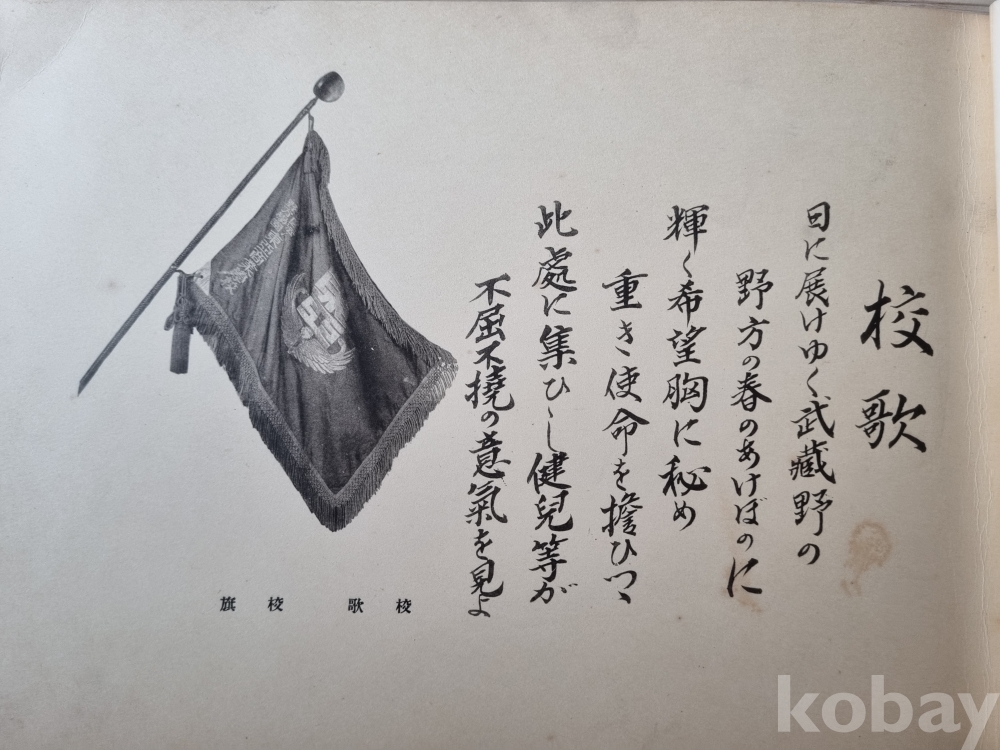 校歌
日に展けゆく武藏野の
野方の春のあけぼのに
輝く希望胸に秘め
重き使命を擔ひつゝ
此處に集ひし健兒等が
不屈不撓の意氣を見よ
校歌 校旗
kobay